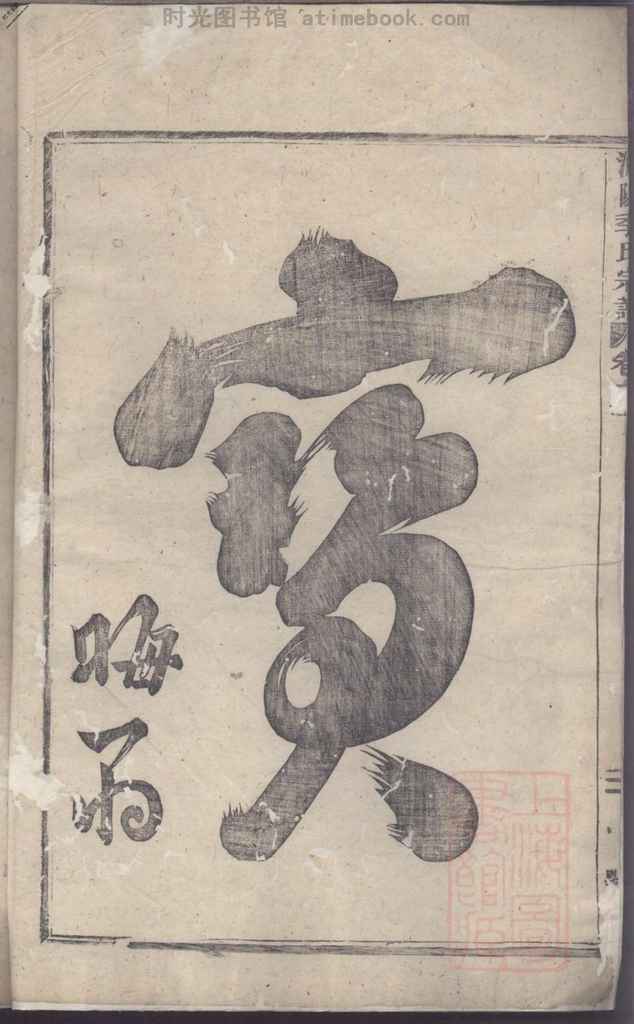 时光图书馆 atimebook.com
陽李氏宗譜 卷
寶
晦翁
二
上海圖書館藏